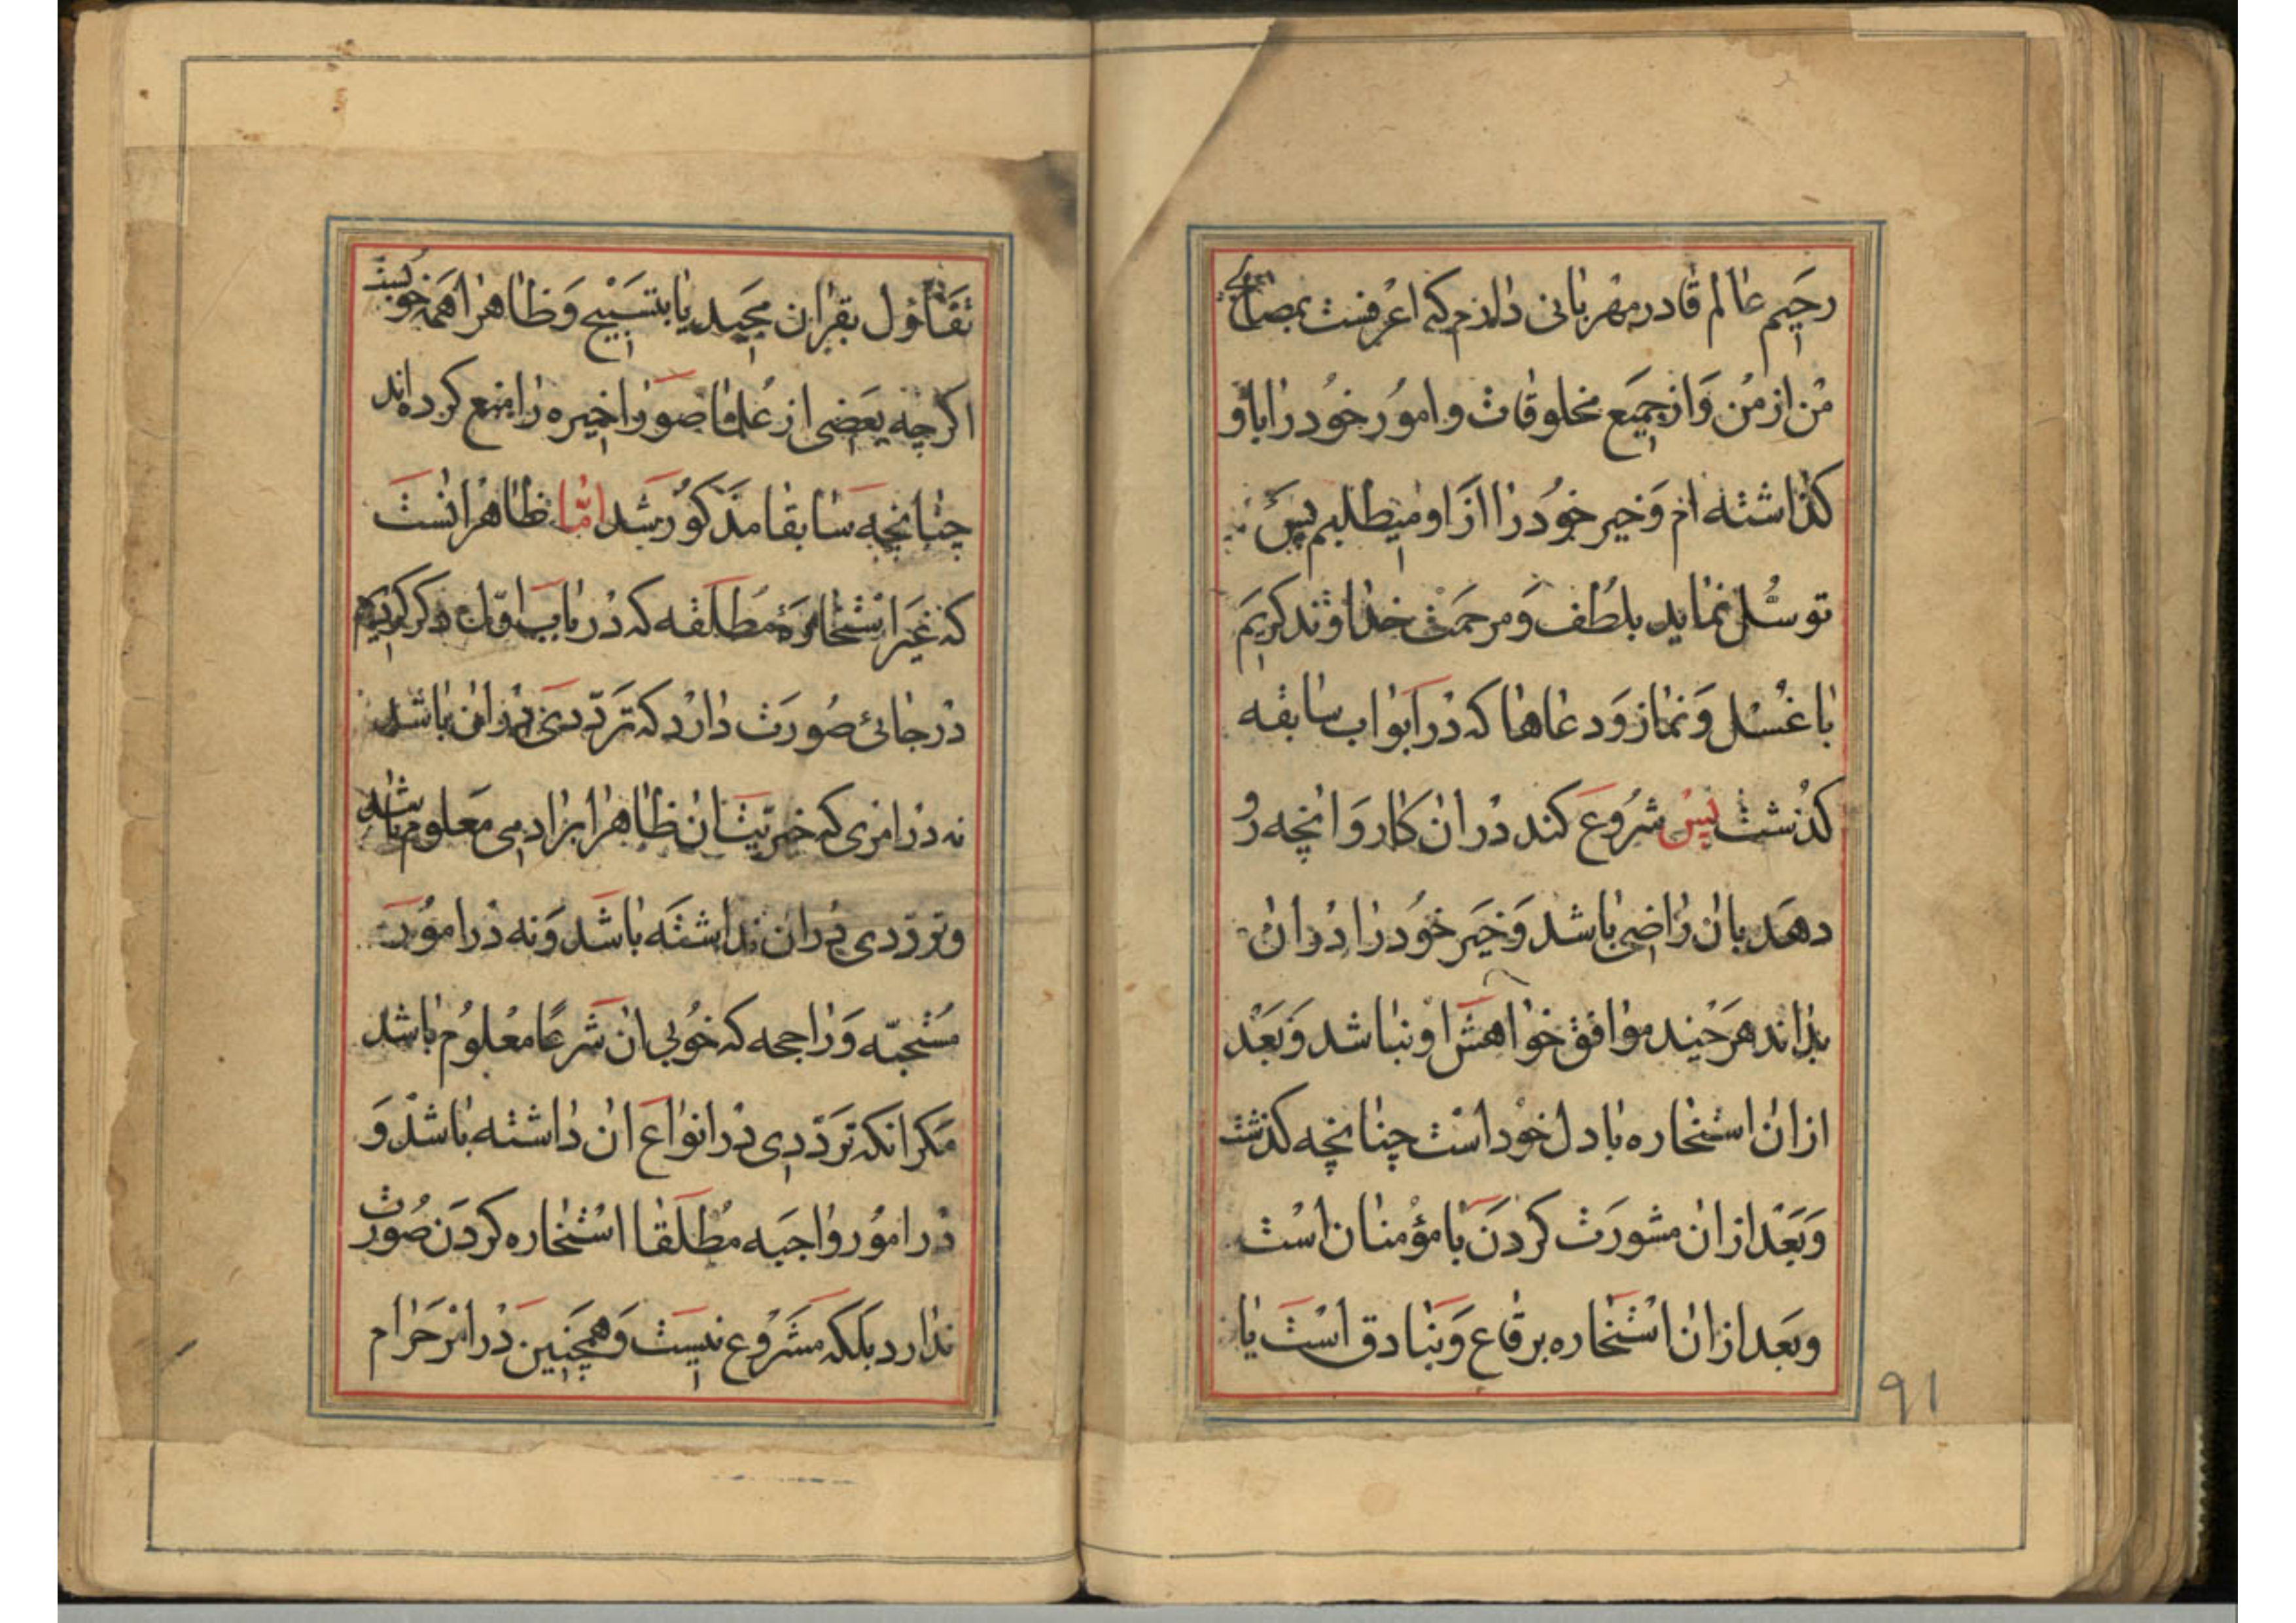 رحیم عالم قادر مهربانی دارم که اعرفست بمصالح
من از من و از جمیع مخلوقات و امور خود را باو
کذاشته ام و خیر خود را از او میطلبم پس
توسل نماید بلطف و مرحمت خداوند کریم
با غسل و نماز و دعاها که در ابواب سابقه
کذشت پس شروع کند در ان کار و انچه رو
دهد بان راضی باشد و خیر خود را در ان
بداند هر چند موافق خواهش او نباشد و بعد
از ان استخاره با دل خود است چنانچه کذشت
و بعد از ان مشورت کردن با مؤمنان است
و بعد از ان استخاره برقاع و بنادق است یا
۹۱
تفاؤل بقران مجید یا بتسبیح و ظاهرا همه خوبست
اکرچه بعضی از علما صور اخیره را منع کرده اند
چنانچه سابقا مذکور شد اما ظاهر انست
که غیر استخارهٔ مطلقه که در باب اول ذکر کردیم
در جائی صورت دارد که ترددی در ان باشد
نه در امری که خیریت ان ظاهرا بر ادمی معلوم باشد
و ترددی در ان نداشته باشد و نه در امور
مستحبه و راجحه که خوبی ان شرعا معلوم باشد
مکر انکه ترددی در انواع ان داشته باشد و
در امور واجبه مطلقا استخاره کردن صورت
ندارد بلکه مشروع نیست و همچنین در امر حرام